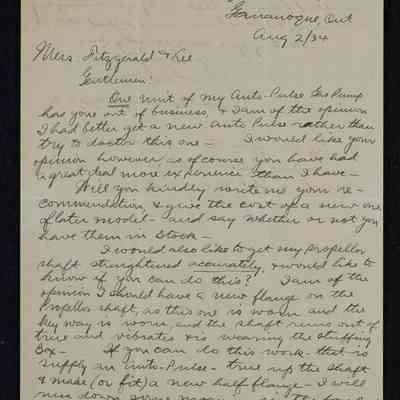 Gananoque, Ont
Aug 2/34
Mess Fitzgerald & Lee
Gentlemen:
One unit of my Auto-Pulse Gas Pump
has gone out of business, & I am of the opinion
I had better get a new Auto Pulse rather than
try to doctor this one - I would like your
opinion however as of course you have had
a great deal more experience than I have -
Will you kindly write me your re-
commendation, & give the cost of a new one
of later model - and say whether or not you
have them in stock -
I would also like to get my propellor
shaft straightened accurately, & would like to
know if you can do this? I am of the
opinion I should have a new flange on the
Propellor shaft, as this one is worn and the
key way is worn, and the shaft runs out of
true and vibrates & is wearing the stuffing
Box - If you can do this work - that is
supply an Auto-Pulse - true up the shaft
& make (or fit) a new half flange - I will
run down some